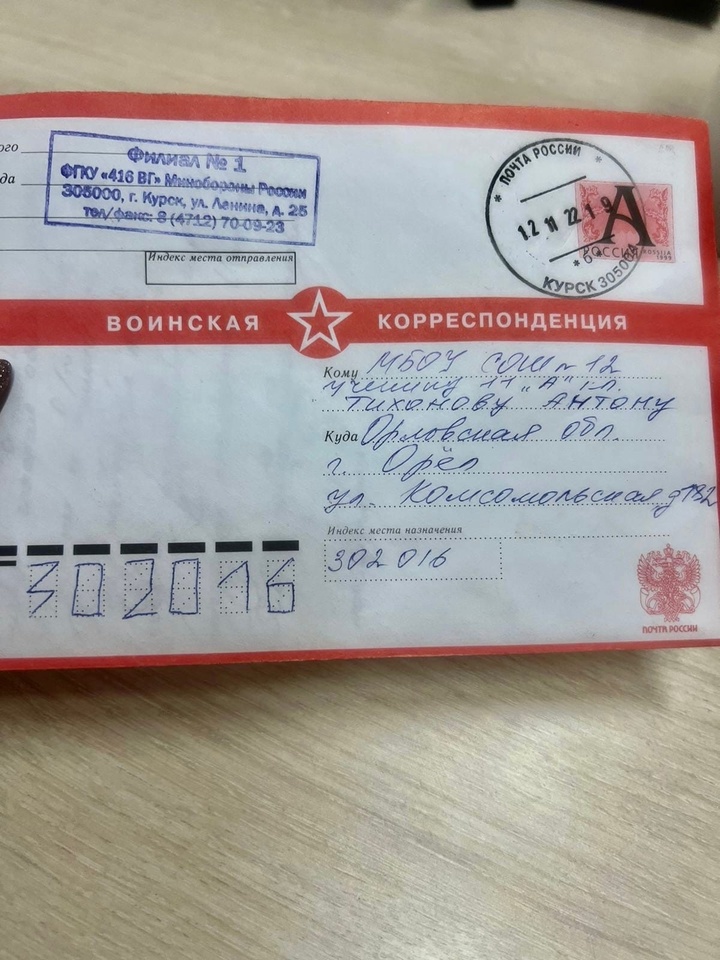 ого
да
Филиал № 1
ФГКУ «416 ВГ» Минобороны России
305000, г. Курск, ул. Ленина, д. 25
тел/факс: 8 (4712) 70-09-23
Индекс места отправления
* ПОЧТА РОССИИ *
12 11 22 1 9
КУРСК 305000
А
РОССИЯ
ROSSIJA
1999
ВОИНСКАЯ КОРРЕСПОНДЕНЦИЯ
Кому МБОУ СОШ № 12
ученику 11 „А" кл.
Тихонову Антону
Куда Орловская обл.
г. Орёл
ул. Комсомольская
Индекс места назначения
302016
302016
ПОЧТА РОССИИ